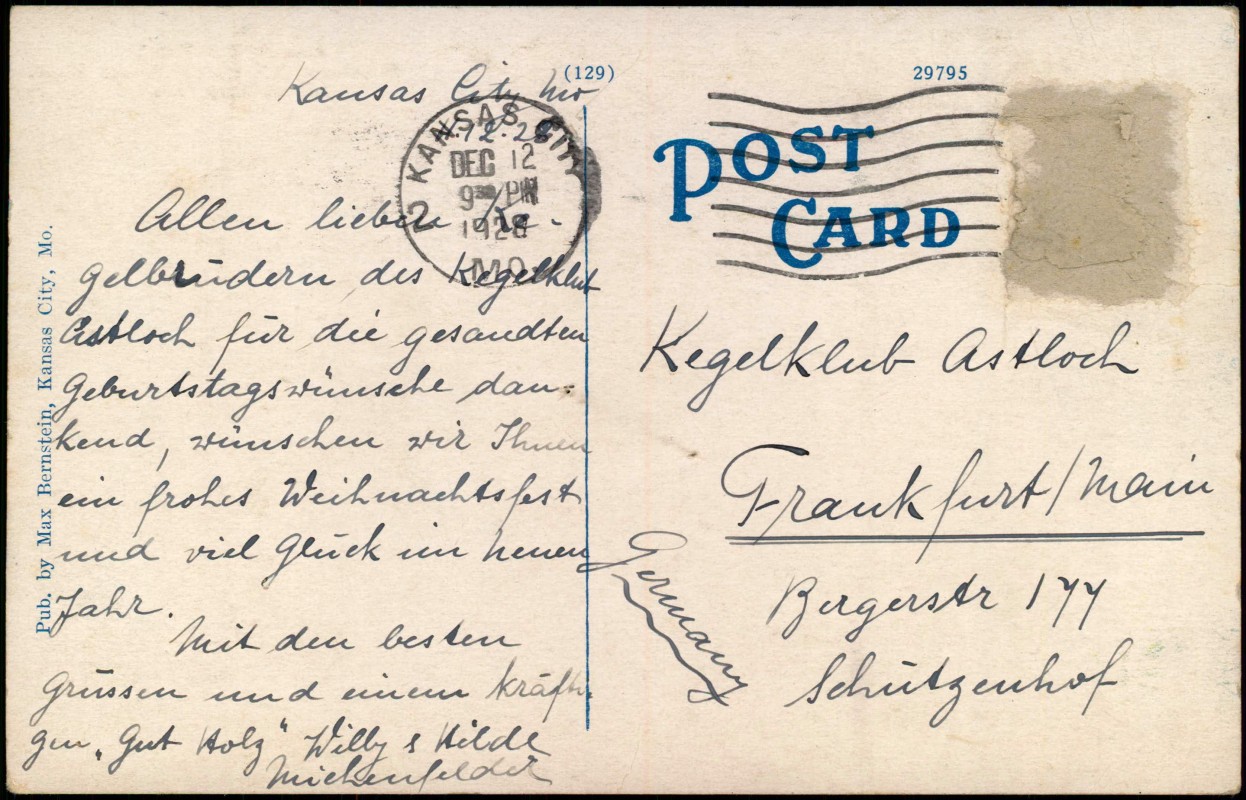 (129)
29795
Kansas City Mo
.12.28
KANSAS CITY
DEC 12
9 30 PM
1928
MO.
2
POST
CARD
Allen lieben
gelbrüdern des Kegelklub
Astloch für die gesandten
Geburtstagswünsche dan-
kend, wünschen wir Ihnen
ein frohes Weihnachtsfest
und viel Glück im neuen
Jahr.
Mit den besten
Grüssen und einem kräfti-
gen „Gut Holz" Willy & Hilde
Michenfelder
Kegelklub Astloch
Frankfurt/Main
Germany
Bergerstr 177
Schützenhof
Pub. by Max Bernstein, Kansas City, Mo.